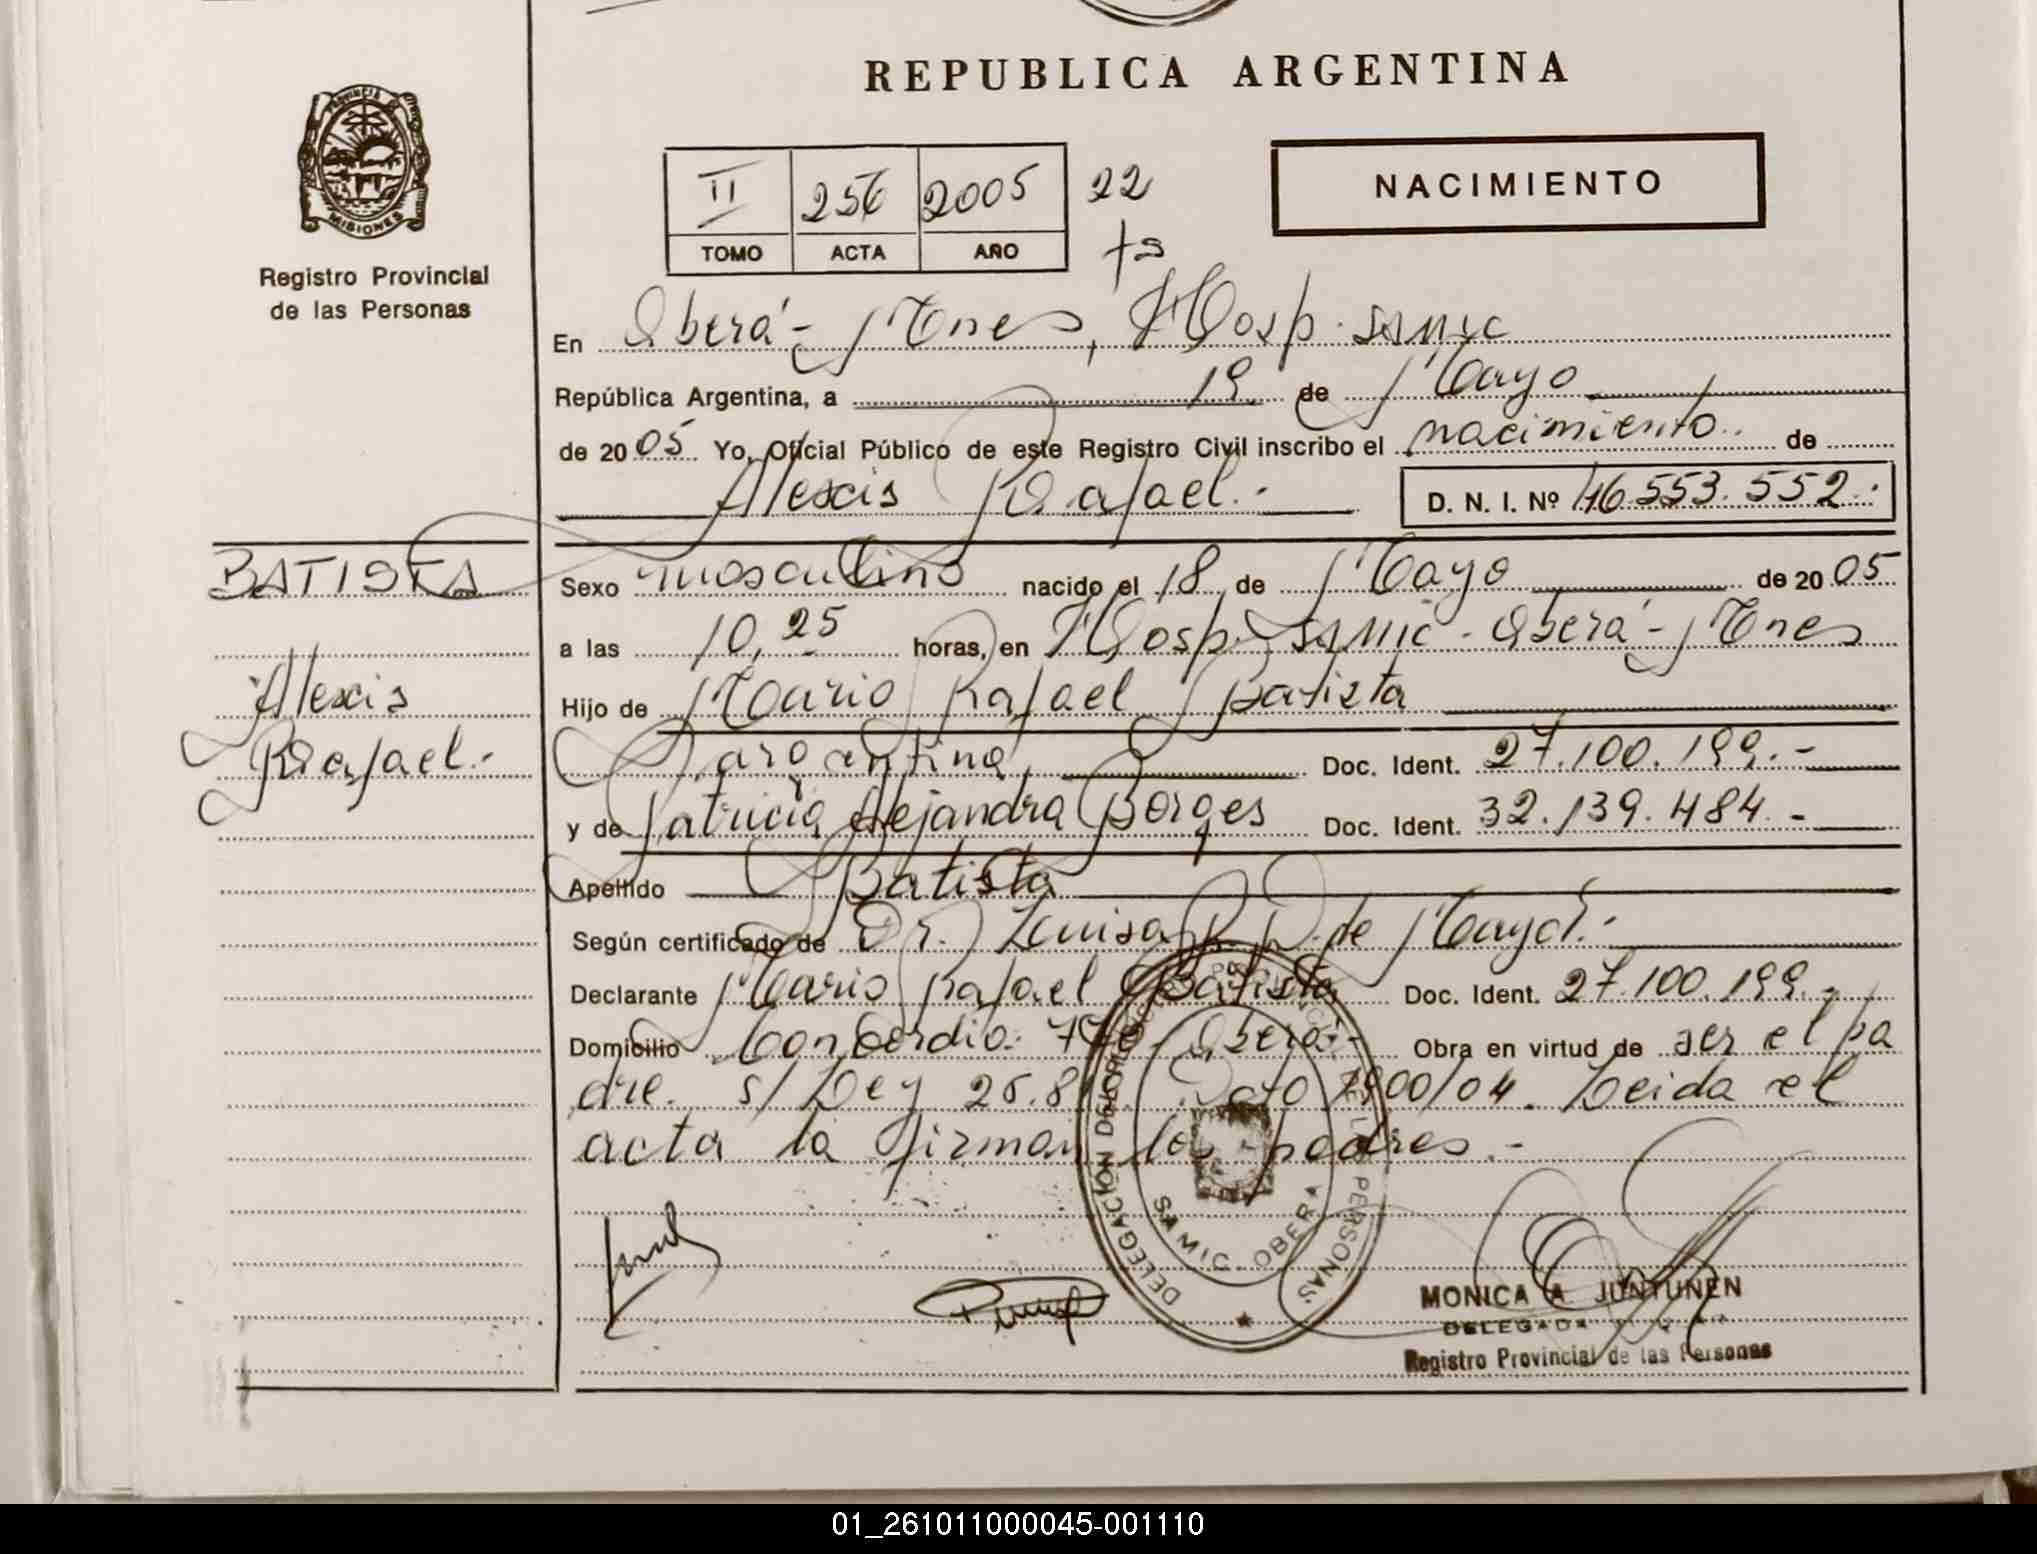 REPUBLICA ARGENTINA
PROVINCIA DE MISIONES
Registro Provincial
de las Personas
II 256 2005 22
TOMO ACTA AÑO
NACIMIENTO
En Oberá - Mnes, Hosp. SAMIC
República Argentina, a 19 de Mayo
de 2005 Yo, Oficial Público de este Registro Civil inscribo el nacimiento de
Alexis Rafael.- D. N. I. Nº 46.553.552.-
BATISTA
Alexis
Rafael.-
Sexo masculino nacido el 18 de Mayo de 2005
a las 10,25 horas, en Hosp. SAMIC - Oberá - Mnes
Hijo de Mario Rafael Batista
argentina Doc. Ident. 27.100.199.-
y de Patricia Alejandra Borges Doc. Ident. 32.139.484.-
Apellido Batista
Según certificado de Dr. Luisa R. D. de Mayol.-
Declarante Mario Rafael Batista Doc. Ident. 27.100.199.-
Domicilio Concordia Oberá.- Obra en virtud de ser el pa
dre. s/ Ley Dcto 1900/04. Leida el
acta la firman los padres.-
DELEGACION DEL REGISTRO PROVINCIAL DE LAS PERSONAS
SAMIC OBERA
MONICA A. JUNTUNEN
DELEGADA
Registro Provincial de las Personas
01_261011000045-001110